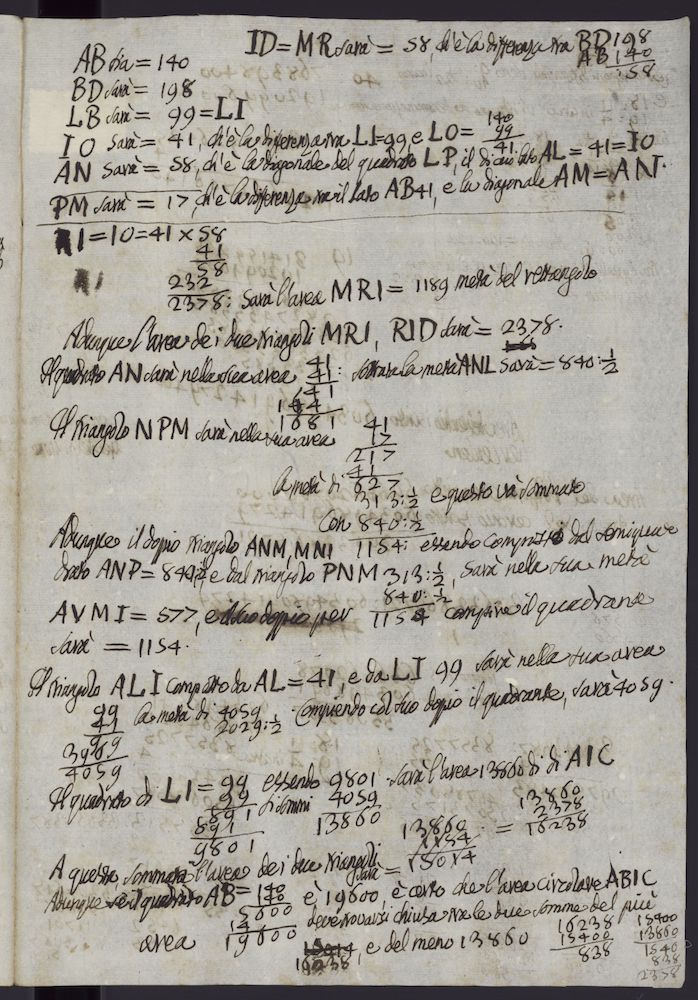 ID = MR sarà = 58, ch'è la differenza tra BD 198
AB 140
158
AB sia = 140
BD sarà = 198
LB sarà = 99 = LI
IO sarà = 41, ch'è la differenza tra LI = 99, e LO = 140
99
41
AN sarà = 58, ch'è la diagonale del quadrato LP, il di cui lato AL = 41 = IO
PM sarà = 17, ch'è la differenza tra il lato AB 41, e la diagonale AM = AN.
RI = IO = 41 × 58
41
58
232
2378: sarà l'area MRI = 1189 metà del rettangolo
Adunque l'area dei due triangoli MRI, RID sarà = 2378.
Il quadrato AN sarà nella sua area 41
41: sottratta la metà ANL sarà = 840:½
41
164
1681
Il triangolo NPM sarà nella sua area 41
17
217
41
627
la metà di 313:½ e questo và sommato
Con 840:½
1154:
Adunque il doppio triangolo ANM, MNI essendo composto dal semiqua=
drato ANP = 840½ e dal triangolo PNM 313:½, sarà nella sua metà
840:½
1154
AVMI = 577, e il suo doppio per compire il quadrante
sarà = 1154.
Il triangolo ALI composto da AL = 41, e da LI 99 sarà nella sua area
99
41
99
3969
4059
la metà di 4059
2029:½
Compiendo col suo doppio il quadrante, sarà 4059.
Il quadrato di LI = 99 essendo 9801 sarà l'area 13860 di AIC
99
891
891
9801
si sommi 4059
13860
13860
1154
15014
= 13860
2378
16238
A questa sommata l'area dei due triangoli sarà =
Adunque se il quadrato AB = 140
140
5600
14
19600
è 19600 è certo che l'area circolare ABIC
deve trovarsi chiusa tra le due somme del più
area 15014
16238, e del meno 13860
16238
15400
838
15400
13860
1540
838
2378